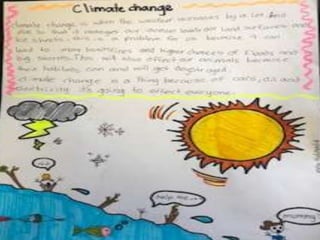 Climate change
Climate change is when the weather increases by a lot. And
due to that it damages our
like streets. this is a problem for us because it can
lead to more bushfires and higher chances of floods and
big storms. This will also affect our animals because
their habitats can and will get destroyed.
climate change is a thing because of cars, oil and
electricity it's going to affect everyone.
help me
mummy